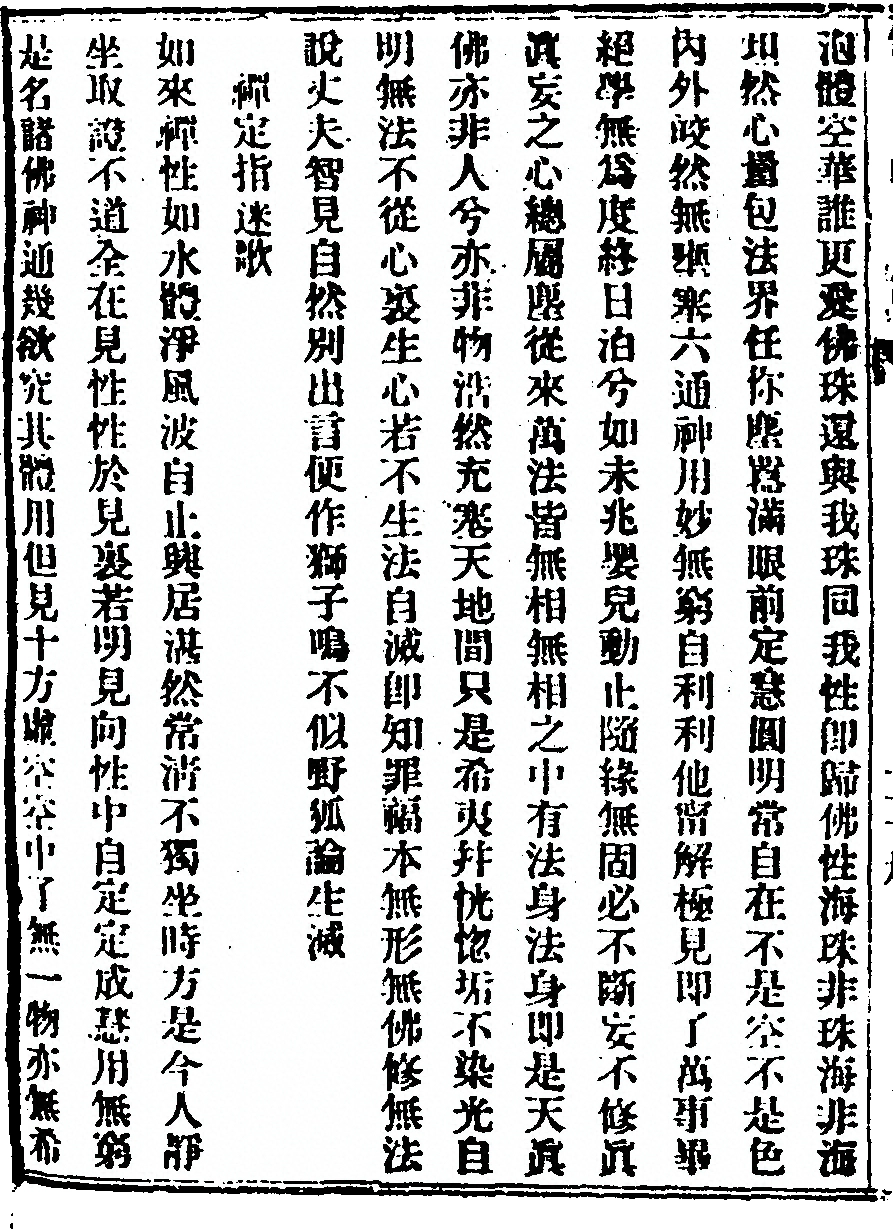 泡體空華誰更愛佛珠還與我珠同我性卽歸佛性海珠非珠海非海
坦然心量包法界任你塵囂滿眼前定慧圓明常自在不是空不是色
內外皎然無壅塞六通神用妙無窮自利利他寧解極見即了萬事畢
絕學無爲度終日泊兮如未兆嬰兒動止隨緣無固必不斷妄不修眞
眞妄之心總屬塵從來萬法皆無相無相之中有法身法身即是天眞
佛亦非人兮亦非物浩然充塞天地間只是希夷并恍惚垢不染光自
明無法不從心裏生心若不生法自滅卽知罪福本無形無佛修無法
說丈夫智見自然別出言便作獅子鳴不似野狐論生滅
禪定指迷歌
如來禪性如水體淨風波自止興居湛然常淸不獨坐時方是今人靜
坐取證不道全在見性性於見裏若明見向性中自定定成慧用無窮
是名諸佛神通幾欲究其體用但見十方虛空空中了無一物亦無希